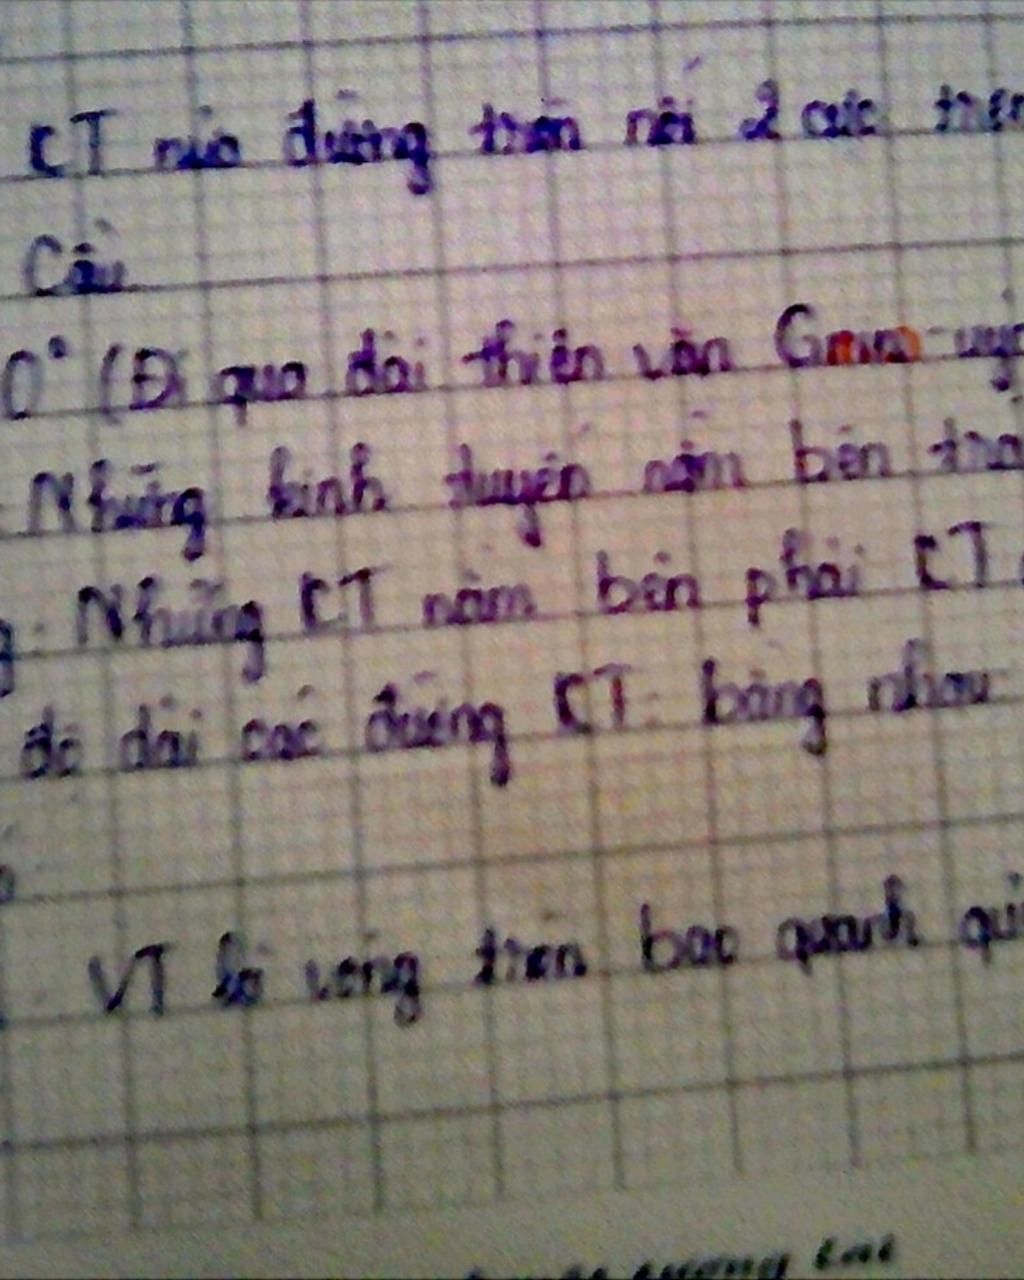 KT nửa đường tròn nối 2 cực trên
Cầu
0° (Đi qua đài thiên văn
Những kinh tuyến nằm bên
Những KT nằm bên phải KT
độ dài các đường KT: bằng nhau
VT là vòng tròn bao quanh